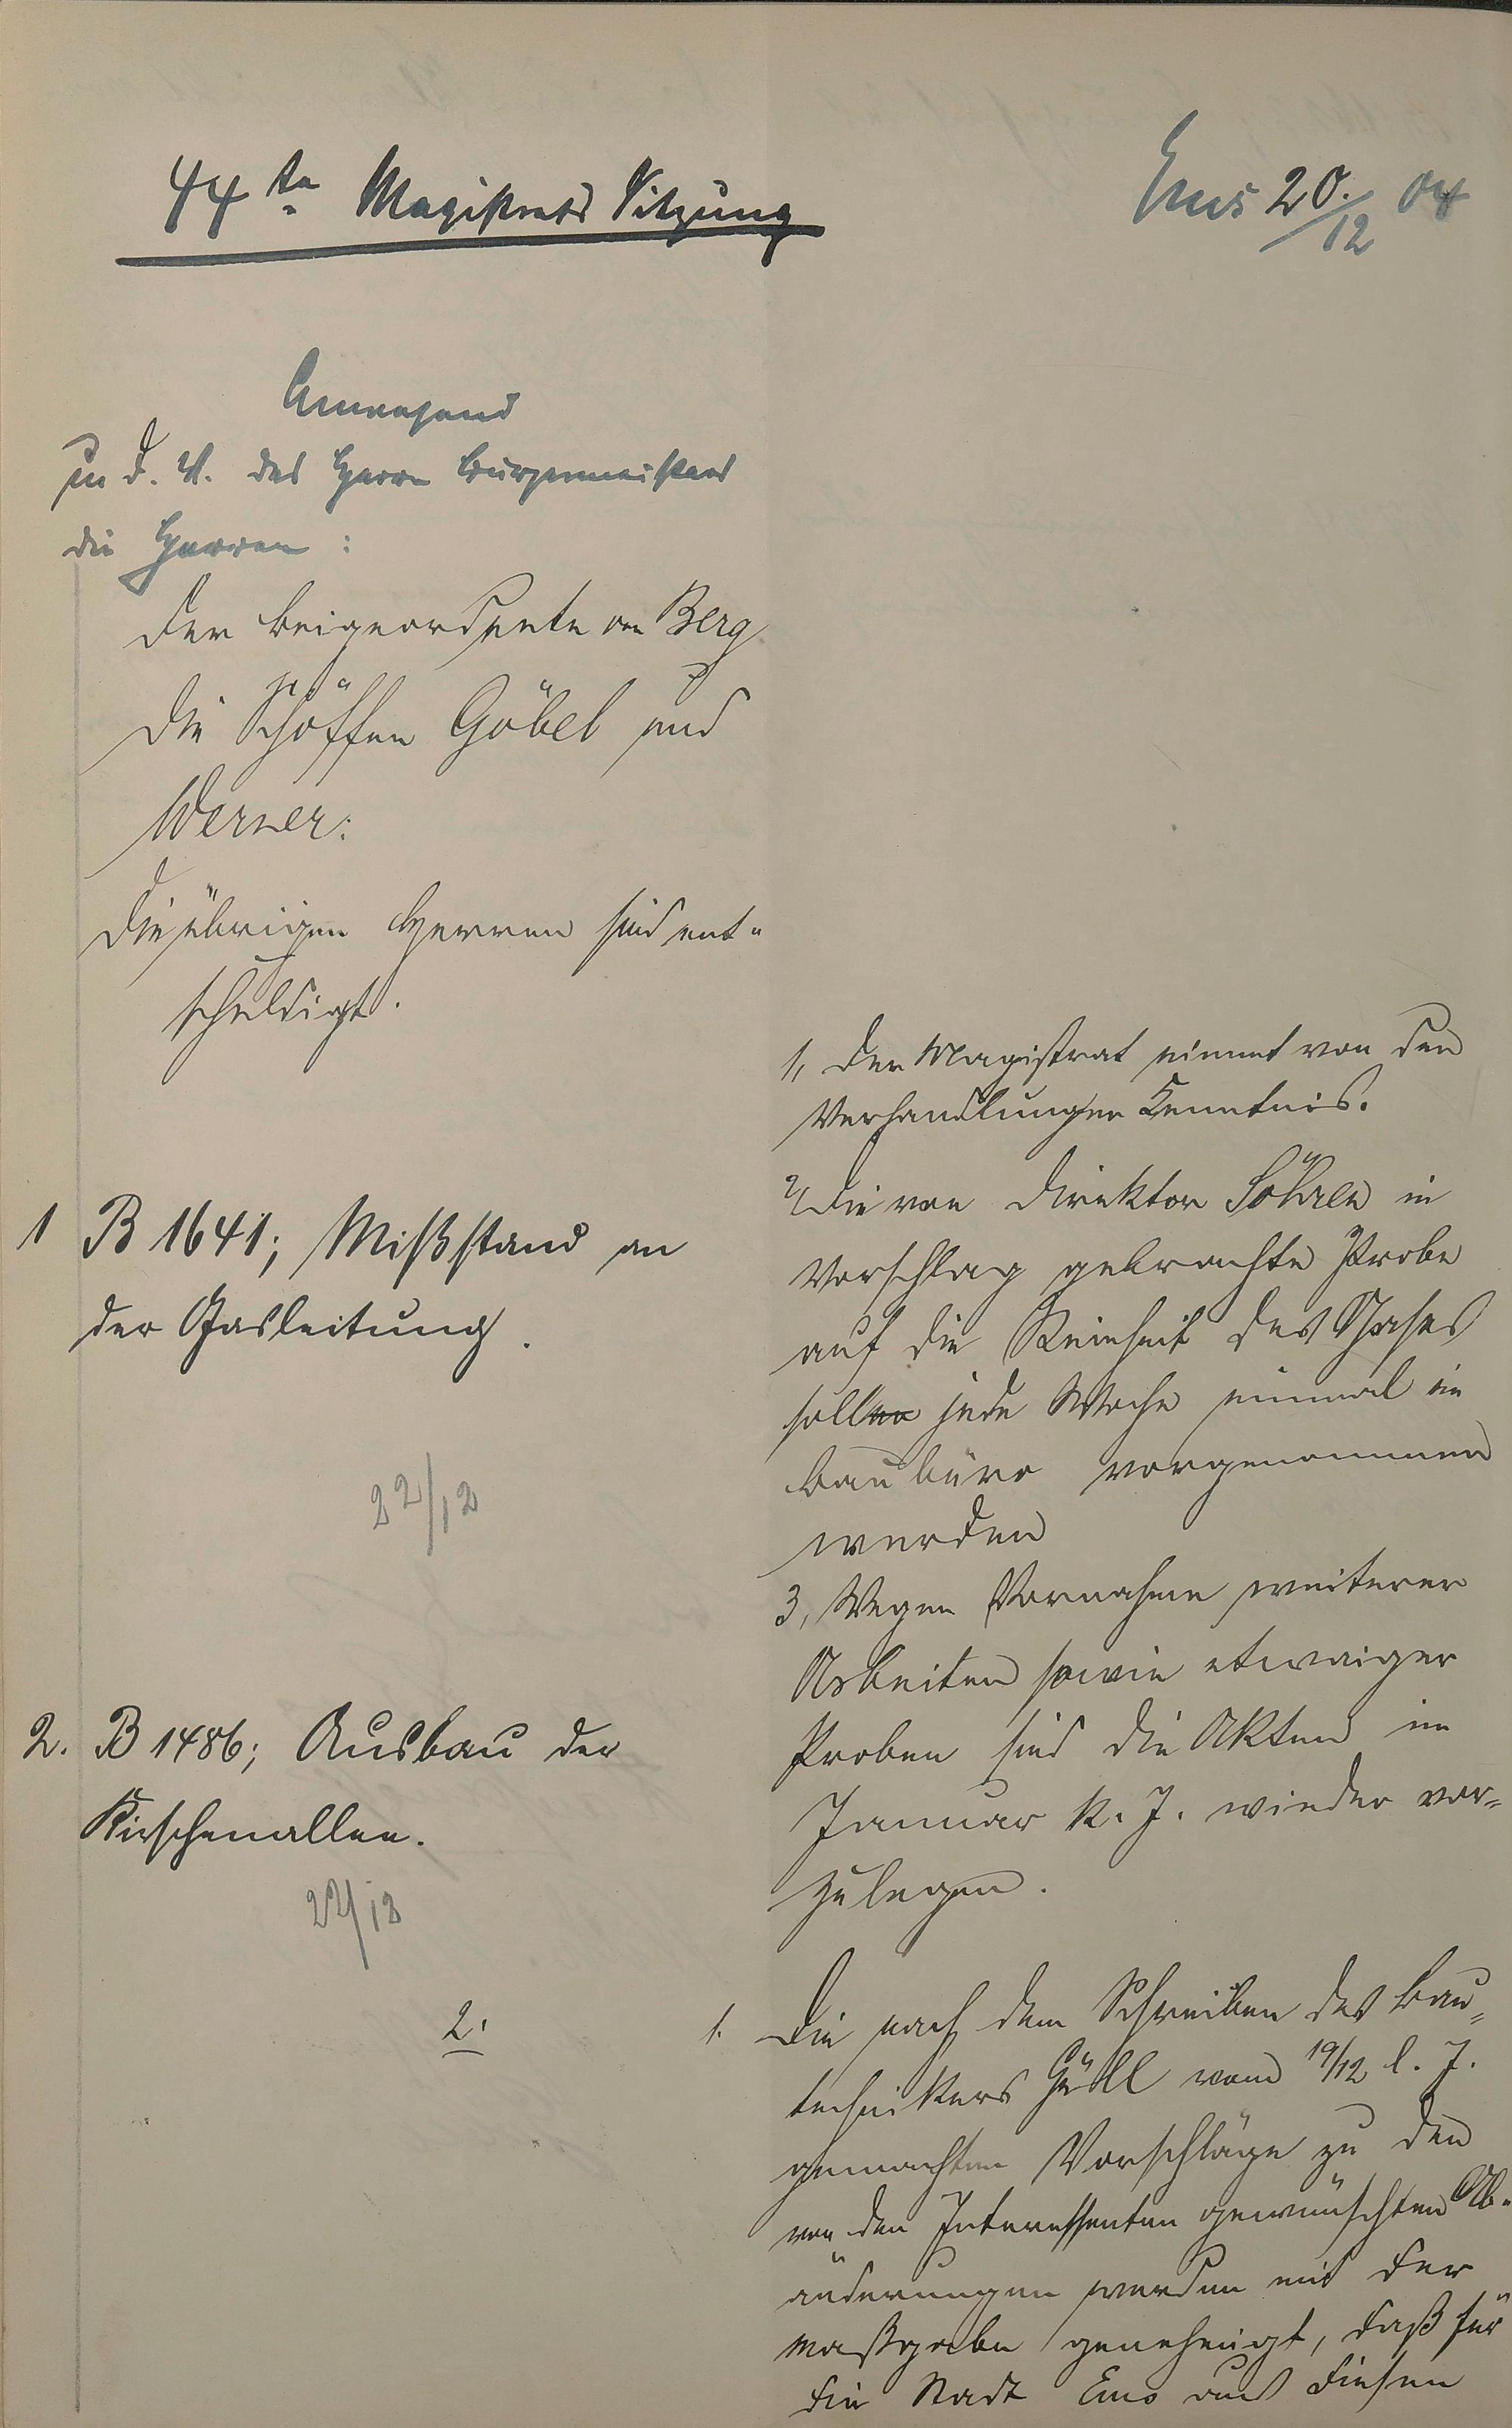 44te Magistrats Sitzung
Ems 20./12 04
Anwesend
u. d. V. des Herrn Bürgermeisters
die Herren:
der Beigeordnete von Berg
die Schöffen Göbel und
Werner.
die übrigen Herren sind ent-
schuldigt.
1 B 1641; Mißstand an
der Gasleitung.
22/12
2. B 1486; Ausbau der
Kirschenallee.
22/12
1, der Magistrat nimmt von den
Verhandlungen Kenntnis.
2, die von Direktor Söhren in
Vorschlag gebrachte Probe
auf die Reinheit des Gases
soll jede Woche einmal im
Baubüro vorgenommen
werden
3, Wegen Vornahme weiterer
Arbeiten sowie etwaiger
Proben sind die Akten im
Januar k. J. wieder vor-
zulegen.
2.
1. die nach dem Schreiben des Bau-
technikers Güll vom 19/12 l. J.
gemachten Vorschläge zu den
von den Interessenten gewünschten Ab-
änderungen werden mit der
Maßgabe genehmigt, daß für
die Stadt Ems aus diesen